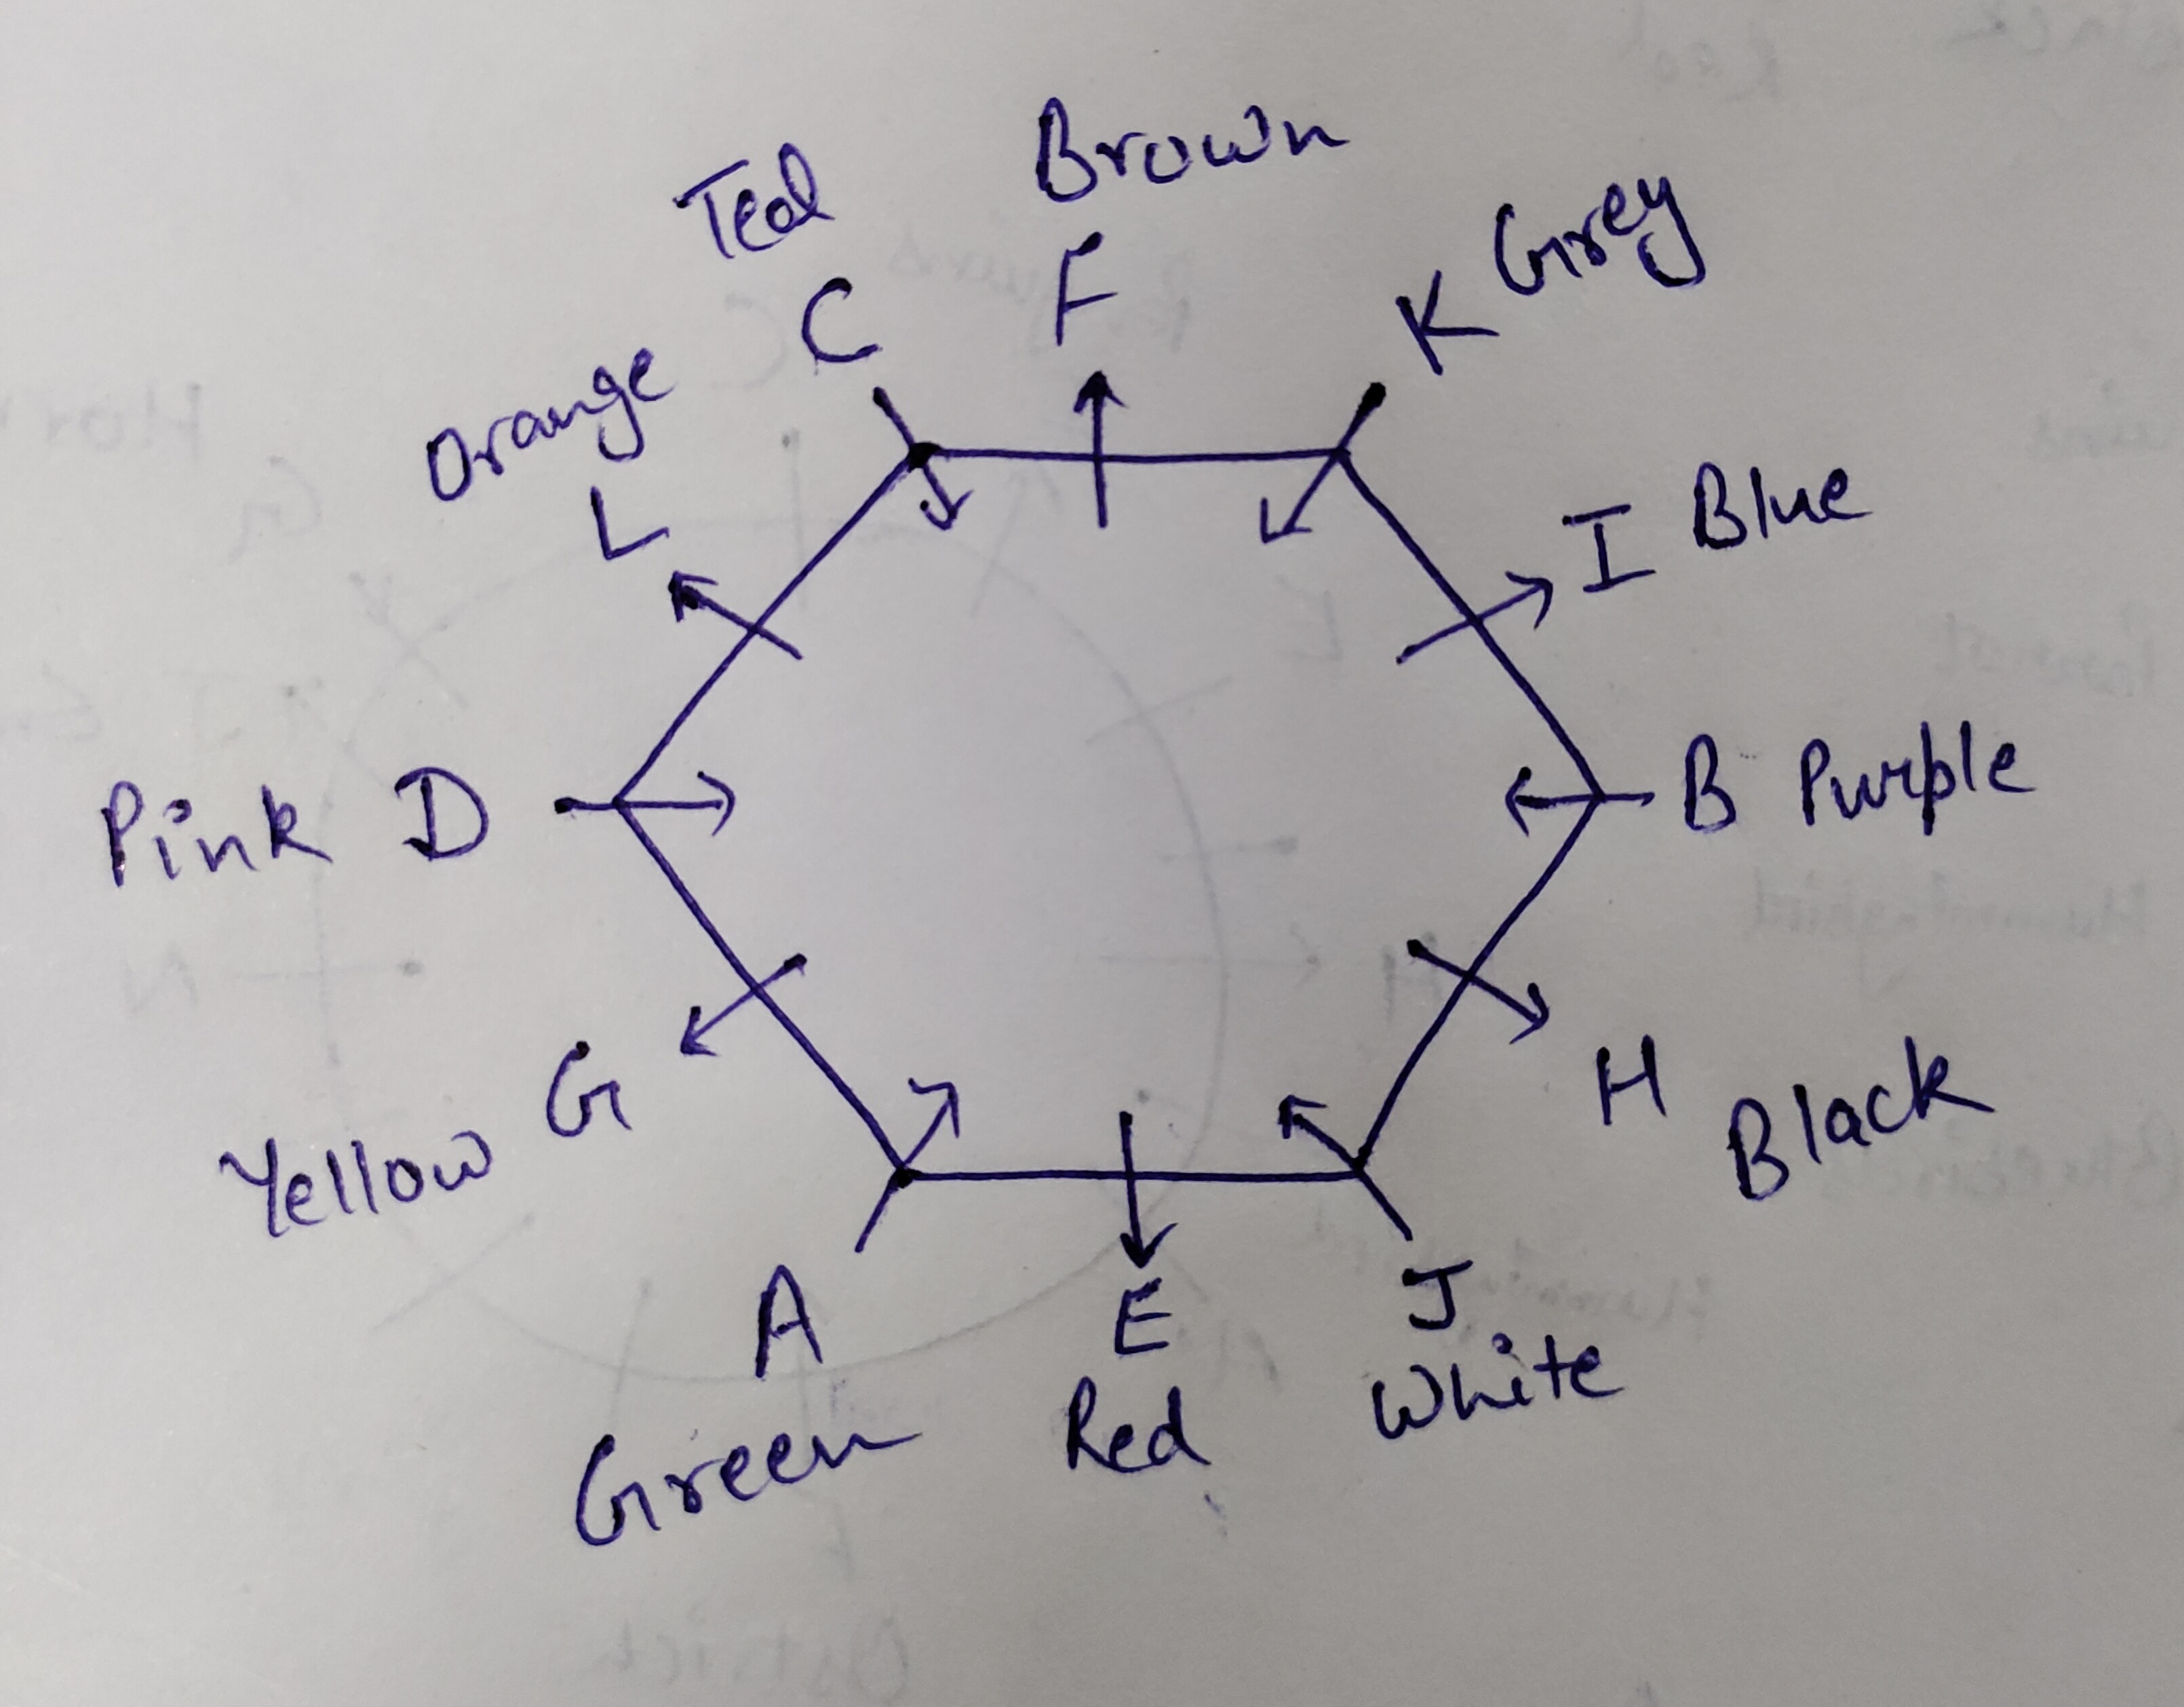 Brown
Teal
F
Grey
C
K
Orange
L
I Blue
Pink D
B Purple
G
Yellow
H
Black
A
E
J
Green
Red
White